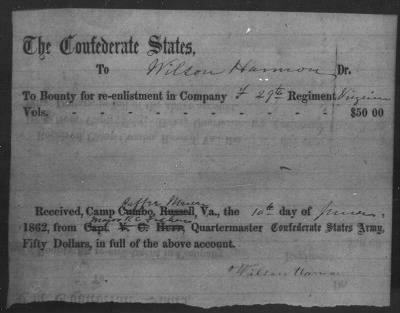 The Confederate States,
To Wilson Harmon, Dr.
To Bounty for re-enlistment in Company F 29th Regiment Virginia
Vols. $50 00
Received, Camp Cumbo, Russell, Va., the 10th day of
1862, from Major Capt. V. C. Herr, Quartermaster Confederate States Army,
Fifty Dollars, in full of the above account.
Wilson Harmon